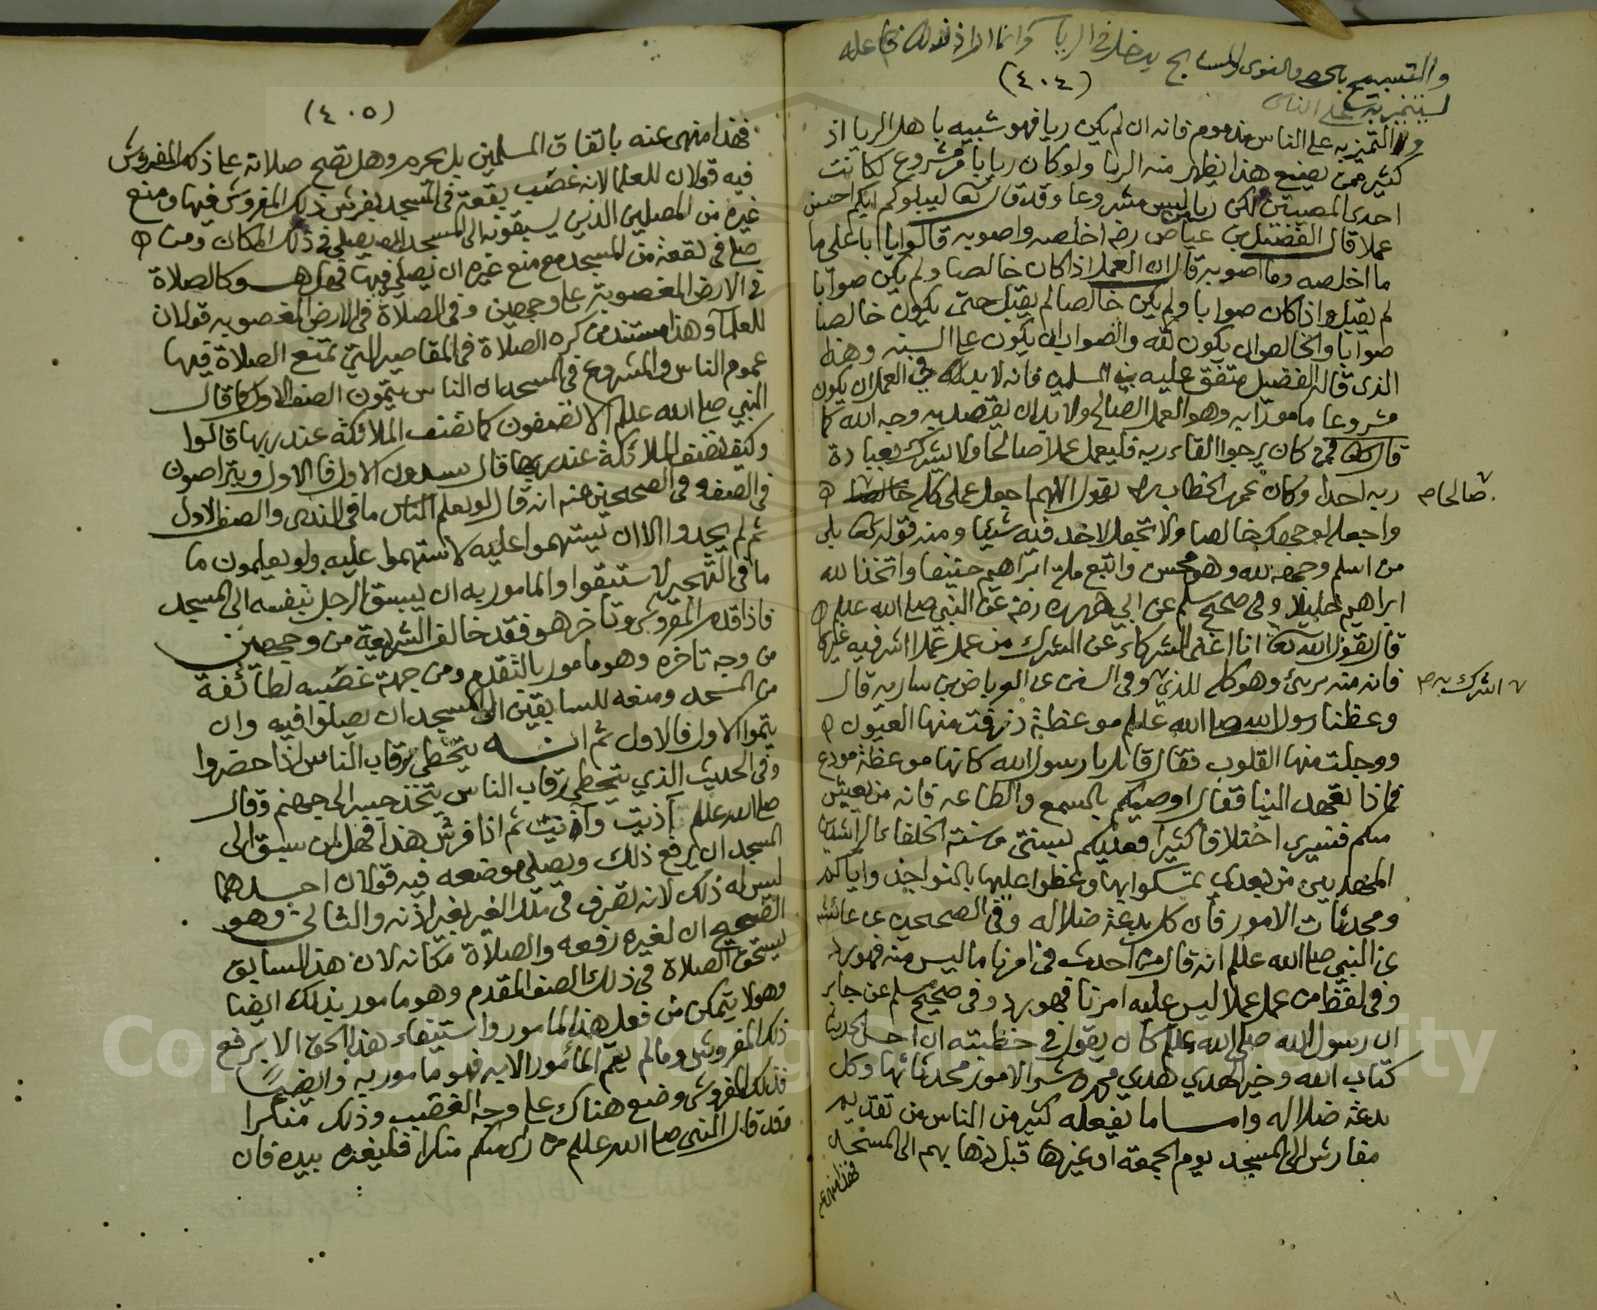 والتسبيح بالحصى والنوى والمسابح يدخل في الريا
(٤٠٤)
ليتميز به على الناس
والتميز به على الناس مذموم فانه ان لم يكن ريا فهو شبيه باهل الريا اذ
كثير ممن يصنع هذا يظهر منه الريا ولو كان ريا بامر مشروع لكانت
احدى المصيبتين لكن ريا ليس مشروعا وقد قال تعا ليبلوكم ايكم احسن
عملا قال الفضيل بن عياض رضه اخلصه واصوبه قالوا يا ابا علي ما
ما اخلصه وما اصوبه قال ان العمل اذا كان خالصا ولم يكن صوابا
لم يقبل واذا كان صوابا ولم يكن خالصا لم يقبل حتى يكون خالصا
صوابا والخالص ان يكون لله والصواب ان يكون على السنه وهذا
الذى قاله الفضيل متفق عليه بين المسلمين فانه لابد له في العمل ان يكون
مشروعا مامورا به وهو العمل الصالح ولا بد ان يقصد به وجه الله كما
قال تعا فمن كان يرجوا لقاء ربه فليعمل عملا صالحا ولا يشرك بعبادة
ربه احدا وكان عمر بن الخطاب يقول اللهم اجعل عملي كله خالصا
صالحا
واجعله لوجهك خالصا ولا تجعل لاحد فيه شيئا ومنه قوله تعا بلى
من اسلم وجهه لله وهو محسن واتبع ملة ابراهيم حنيفا واتخذ الله
ابراهيم خليلا وفي صحيح مسلم عن ابي هريره رضه عن النبي صلى الله علم
قال يقول الله تعا انا اغنى الشركاء عن الشرك من عمل عملا اشرك فيه غيرى
فانه منه برىئ وهو كله للذي وفي السنن عن العرباض بن ساريه قال
اشرك به
وعظنا رسول الله صلى الله علم موعظة ذرفت منها العيون
ووجلت منها القلوب فقال قائل يا رسول الله كانها موعظة مودع
فماذا تعهد الينا فقال اوصيكم بالسمع والطاعه فانه من يعيش
منكم فسيرى اختلافا كثيرا فعليكم بسنتي وسنة الخلفاء الراشدين
المهديين من بعدي تمسكوا بها وعظوا عليها بالنواجذ واياكم
ومحدثات الامور فان كل بدعة ضلاله وفي الصحيحين عن عائشه
عن النبي صلى الله علم انه قال من احدث في امرنا ما ليس منه فهو رد
وفي لفظ من عمل عملا ليس عليه امرنا فهو رد وفي صحيح مسلم عن جابر
ان رسول الله صلى الله علم كان يقول في خطبته ان احسن الحديث
كتاب الله وخير الهدي هدي محمد وشر الامور محدثاتها وكل
بدعة ضلاله واما ما يفعله كثير من الناس من تقديم
مفارش الى المسجد يوم الجمعة او غيرها قبل ذهابهم الى المسجد
فهذا منهى عنه
(٤٠٥)
فهذا منهى عنه باتفاق المسلمين بل محرم وهل تصح صلاته على ذلك المفروش
فيه قولان للعلما لانه غصب بقعة في المسجد بفرش ذلك المفروش فيها ومنع
غيره من المصلين الذين يسبقونه الى المسجد ان يصلي في ذلك المكان ومن
صلى في بقعة من المسجد مع منع غيره ان يصلي فيها فهل هو كالصلاة
في الارض المغصوبة على وجهين وفي الصلاة في الارض المغصوبه قولان
للعلما وهذا مستند من كره الصلاة في المقاصير التي تمنع الصلاة فيها
عموم الناس والمشروع في المسجد ان الناس يتمون الصف الاول كما قال
النبي صلى الله علم الا تصفون كما تصف الملائكة عند ربها قالوا
وكيف تصف الملائكة عند ربها قال يسدون الاول فالاول ويتراصون
في الصف وفي الصحيحين عنه انه قال لو يعلم الناس ما في الندى والصف الاول
ثم لم يجدوا الا ان يستهموا عليه لاستهموا عليه ولو يعلمون ما
ما في التهجير لاستبقوا والمامور به ان يسبق الرجل بنفسه الى المسجد
فاذا قدم المفروش وتاخر هو فقد خالف الشريعة من وجهين
من وجه تاخره وهو مامور بالتقدم ومن جهة غصبه لطائفة
من المسجد ومنعه للسابقين الى المسجد ان يصلوا فيه وان
يتموا الاول فالاول ثم انه يتخطى رقاب الناس اذا حضروا
وفي الحديث الذي يتخطى رقاب الناس يتخذ جسرا الى جهنم وقال
صلى الله علم آذيت وآنيت ثم اذا فرش هذا فهل لمن سبق الى
المسجد ان يرفع ذلك ويصلي موضعه فيه قولان احدهما
ليس له ذلك لانه تصرف في ملك الغير بغير اذنه والثاني وهو
الصحيح ان لغيره رفعه والصلاة مكانه لان هذا السابق
يستحق الصلاة في ذلك الصف المقدم وهو مامور بذلك ايضا
وهو لا يتمكن من فعل هذا المامور واستيفاء هذا الحق الا برفع
ذلك المفروش وما لم يتم المامور الا به فهو مامور به وايضا
فذلك المفروش وضع هناك على وجه الغصب وذلك منكرا
وقد قال النبي صلى الله علم من رأى منكم منكرا فليغيره بيده فان